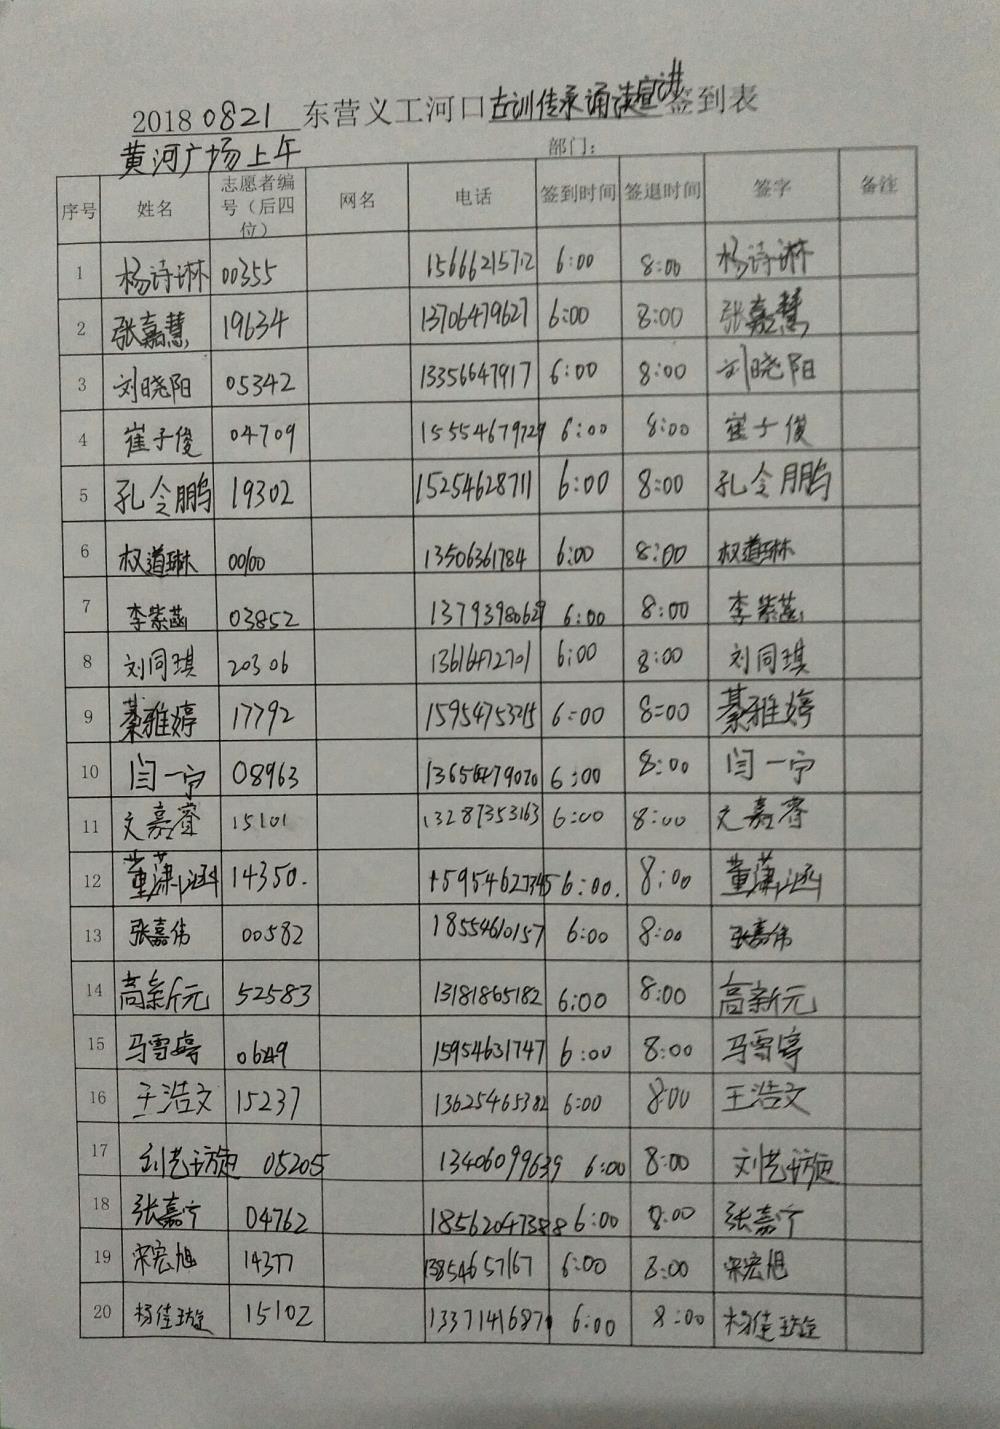 20180821 东营义工河口古训传承诵读宣讲签到表
黄河广场上午 部门：
序号 姓名 志愿者编号（后四位） 网名 电话 签到时间 签退时间 签字 备注
1 杨诗琳 00355 15666215712 6:00 8:00 杨诗琳
2 张嘉慧 19634 13706479627 6:00 8:00 张嘉慧
3 刘晓阳 05342 13356647917 6:00 8:00 刘晓阳
4 崔子俊 04709 15554679729 6:00 8:00 崔子俊
5 孔令鹏 19302 15254628711 6:00 8:00 孔令鹏
6 权道琳 00100 13506361784 6:00 8:00 权道琳
7 李紫菡 03852 13793980629 6:00 8:00 李紫菡
8 刘同琪 20306 13616472701 6:00 8:00 刘同琪
9 綦雅婷 17792 15954753215 6:00 8:00 綦雅婷
10 闫一宁 08963 13656479020 6:00 8:00 闫一宁
11 文嘉睿 15101 13287353163 6:00 8:00 文嘉睿
12 董潇涵 14350. 15954627345 6:00. 8:00 董潇涵
13 张嘉伟 00582 18554610157 6:00 8:00 张嘉伟
14 高新元 52583 13181865182 6:00 8:00 高新元
15 马雪婷 15954631747 6:00 8:00 马雪婷
16 王浩文 15237 13625465382 6:00 8:00 王浩文
17 刘艺璇 05205 13406099639 6:00 8:00 刘艺璇
18 张嘉宁 04762 18562047388 6:00 8:00 张嘉宁
19 宋宏旭 14377 13854657167 6:00 8:00 宋宏旭
20 杨佳璇 15102 13371416870 6:00 8:00 杨佳璇